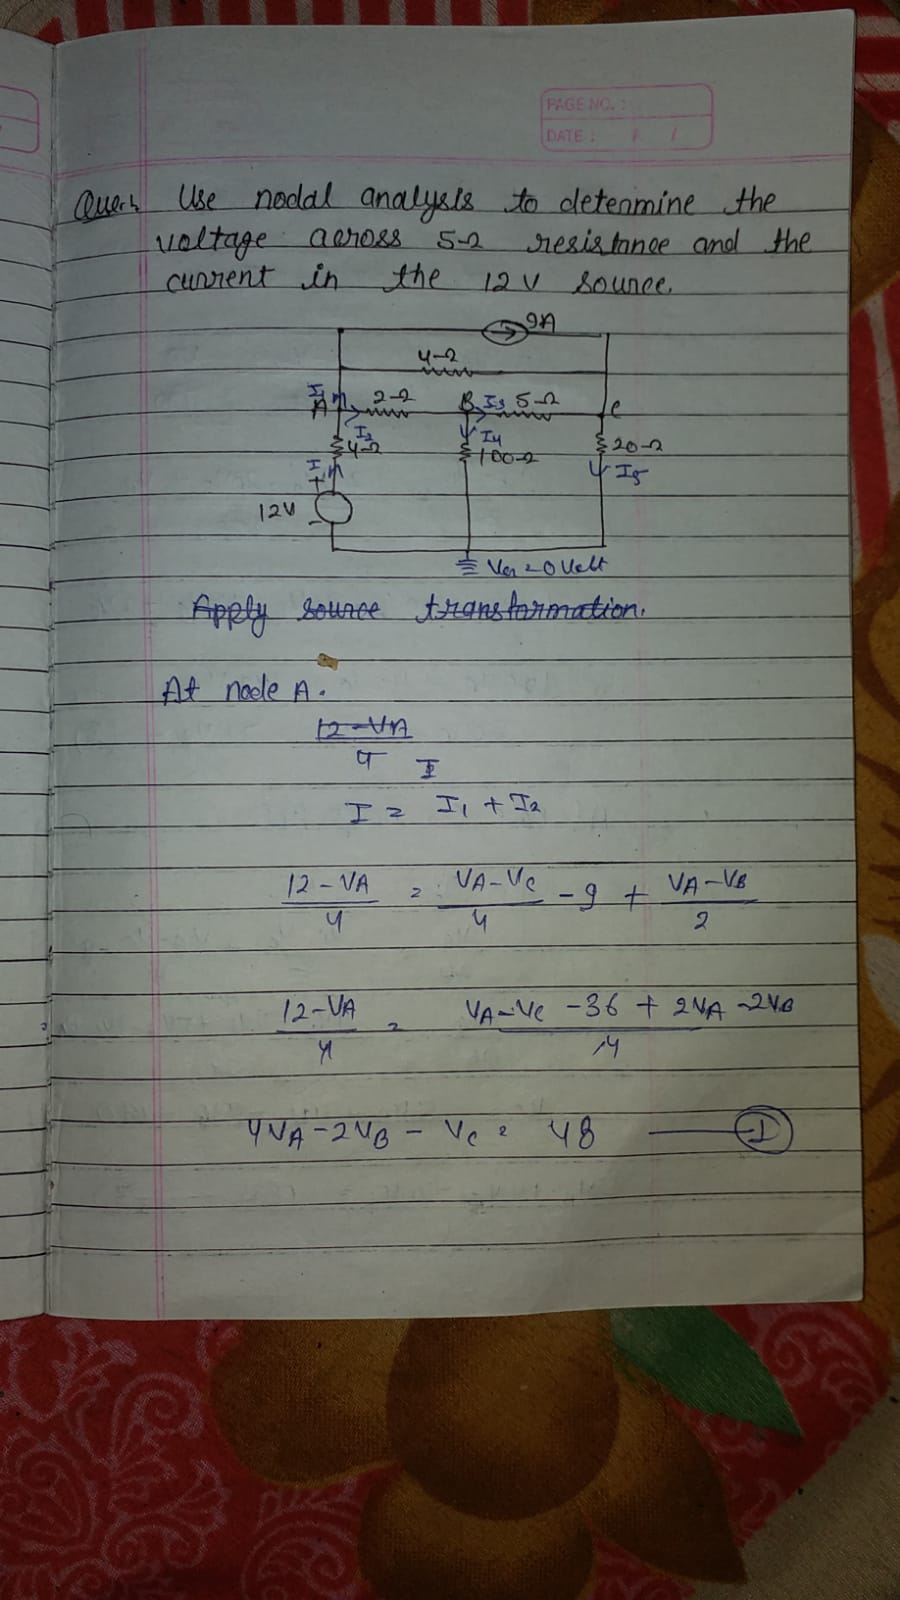 PAGE NO. :
DATE : / /
Ques:- Use nodal analysis to deteamine the
voltage across 5Ω resistance and the
current in the 12 V source.
9A
4Ω
I1 2Ω B I3 5Ω
A I2 C
4Ω I4 20Ω
I 100Ω I5
+
12V
-
= 0 Volt
Apply source transformation.
At node A.
12-VA
4 I
I = I1 + I2
12-VA/4 = VA-VC/4 - 9 + VA-VB/2
12-VA/4 = VA-VC -36 + 2VA -2VB/4
4VA-2VB - VC = 48 — I